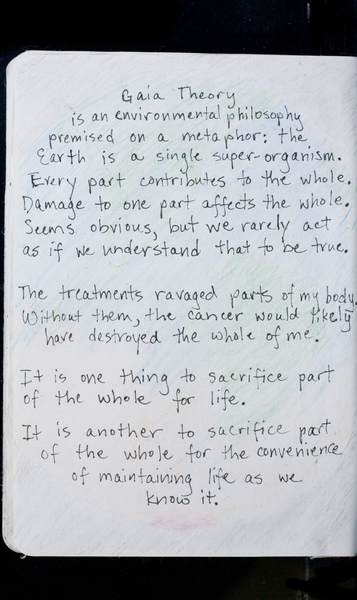 Gaia Theory
is an environmental philosophy
premised on a metaphor: the
Earth is a single super-organism.
Every part contributes to the whole.
Damage to one part affects the whole.
Seems obvious, but we rarely act
as if we understand that to be true.
The treatments ravaged parts of my body.
Without them, the cancer would likely
have destroyed the whole of me.
It is one thing to sacrifice part
of the whole for life.
It is another to sacrifice part
of the whole for the convenience
of maintaining life as we
know it.